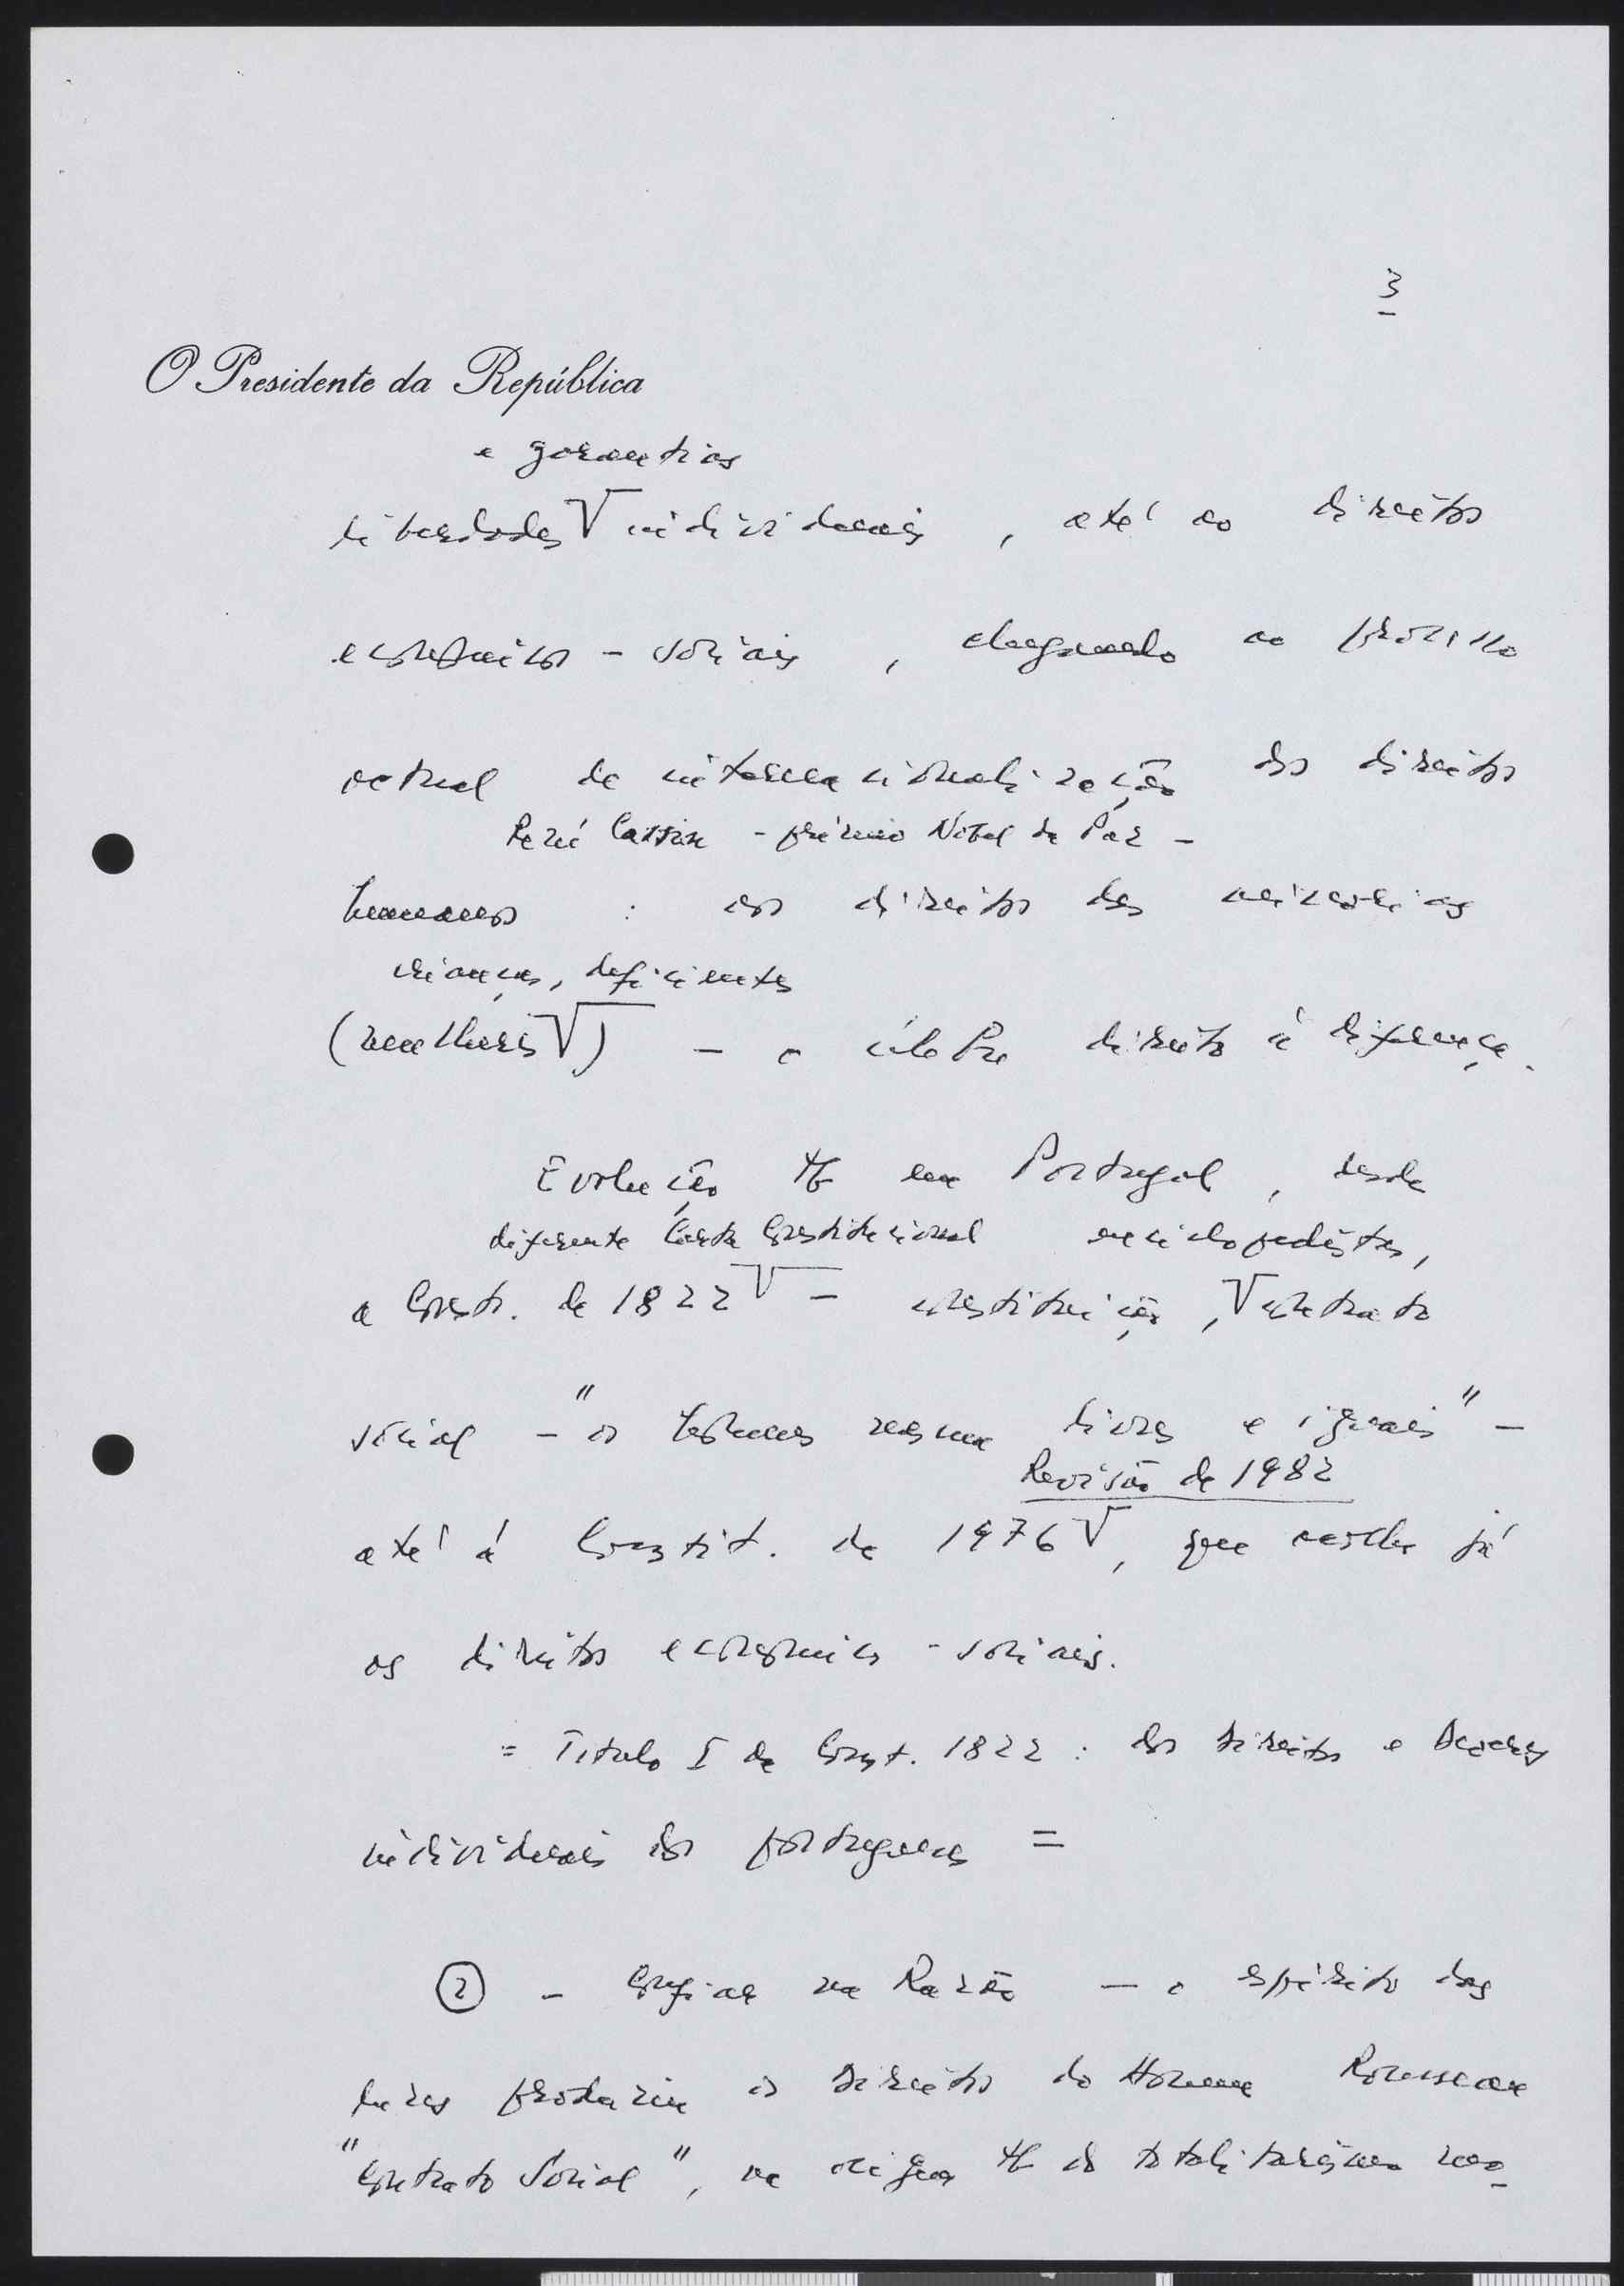 3
O Presidente da República
e garantias
liberdades V individuais, até ao direitos
económicos-sociais, chegando ao processo
actual de internacionalização dos direitos
René Cassin - prémio Nobel da Paz -
humanos : aos direitos das minorias
crianças, deficientes
(mulheres V) - o direito à diferença.
Evolução tb em Portugal, desde
diferente Carta Constitucional enciclopedistas,
a Const. de 1822 V - constituição, V contrato
social - "os homens nascem livres e iguais" -
Revisão de 1982
até à Constit. de 1976 V, que acolhe já
os direitos económicos-sociais.
= Titulo I da Const. 1822 : dos Direitos e Deveres
individuais dos portugueses =
② - Confiar na Razão - o espírito das
luzes produziu os Direitos do Homem Rousseau
"Contrato Social", na origem tb do totalitarismo mo-